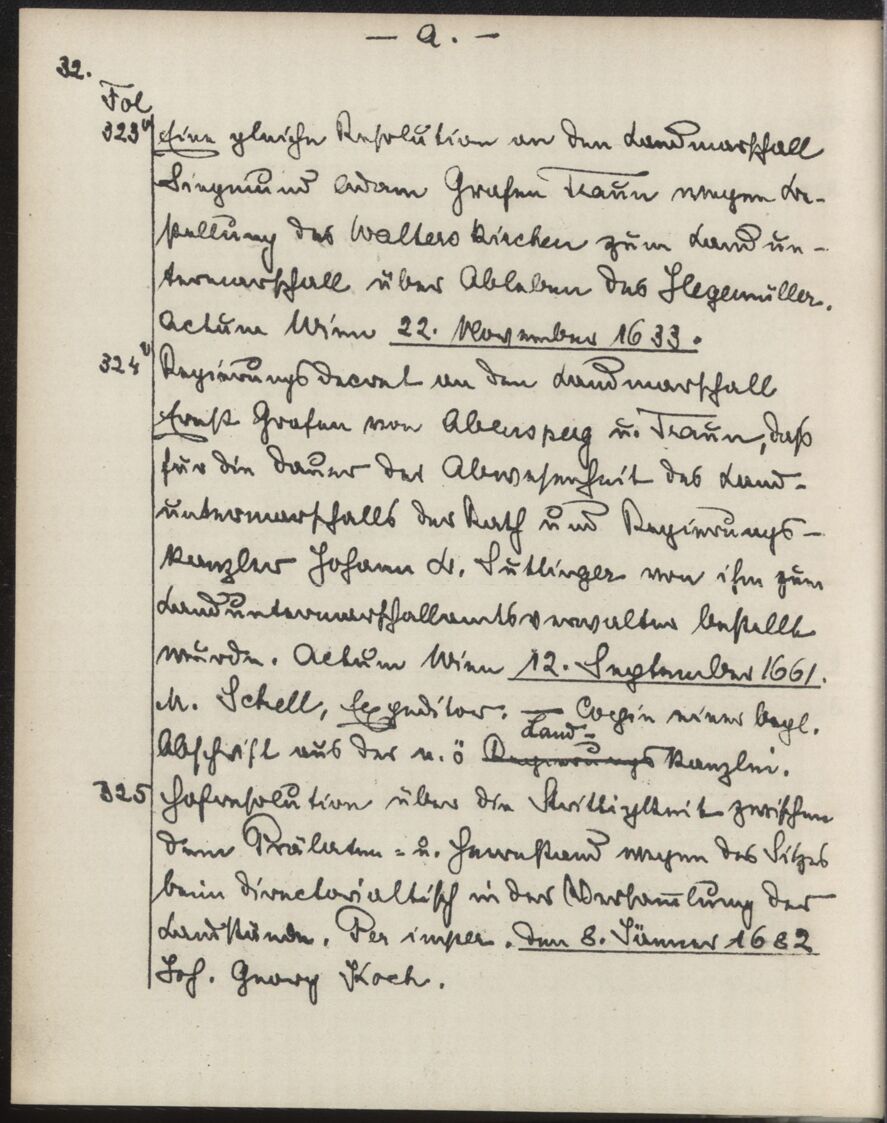 — a. —
32.
Fol
323v Eine gleiche Resolution an den Landmarschall
Siegmund Adam Grafen Traun wegen Be-
stellung des Walterskirchen zum Landun-
termarschall über Ableben des Hegemüller.
Actum Wien 22. November 1633.
324v Regierungsdecret an den Landmarschall
Ernst Grafen von Abensperg u. Traun, daß
für die Dauer der Abwesenheit des Land-
untermarschalls der Rath und Regierungs-
kanzler Johann B. Suttinger von ihm zum
Landuntermarschallamtsverwalter bestellt
wurde. Actum Wien 12. September 1661.
M. Schell, Expeditor. — Copie einer begl.
Land-
Abschrift aus der n. ö Regierungskanzlei.
325 Hofresolution über die Strittigkeit zwischen
dem Prälaten- u. Herrnstand wegen des Sitzes
beim Directorialtisch in der Versam̅lung der
Landstände. Per imper. den 8. Jänner 1682
Joh. Georg Koch.